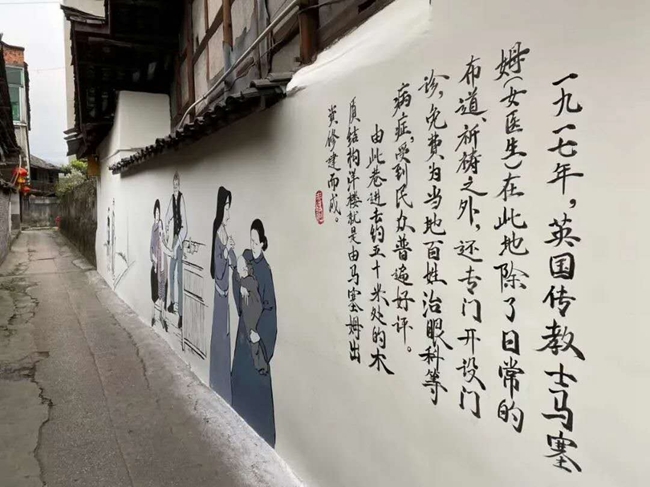 一九一七年，英国传教士马塞
姆（女医生）在此地除了日常的
布道、祈祷之外，还专门开设门
诊，免费为当地百姓治眼科等
病症，受到民众普遍好评。
由此巷进去约五十米处的木
质结构洋楼就是由马塞姆出
资修建而成。